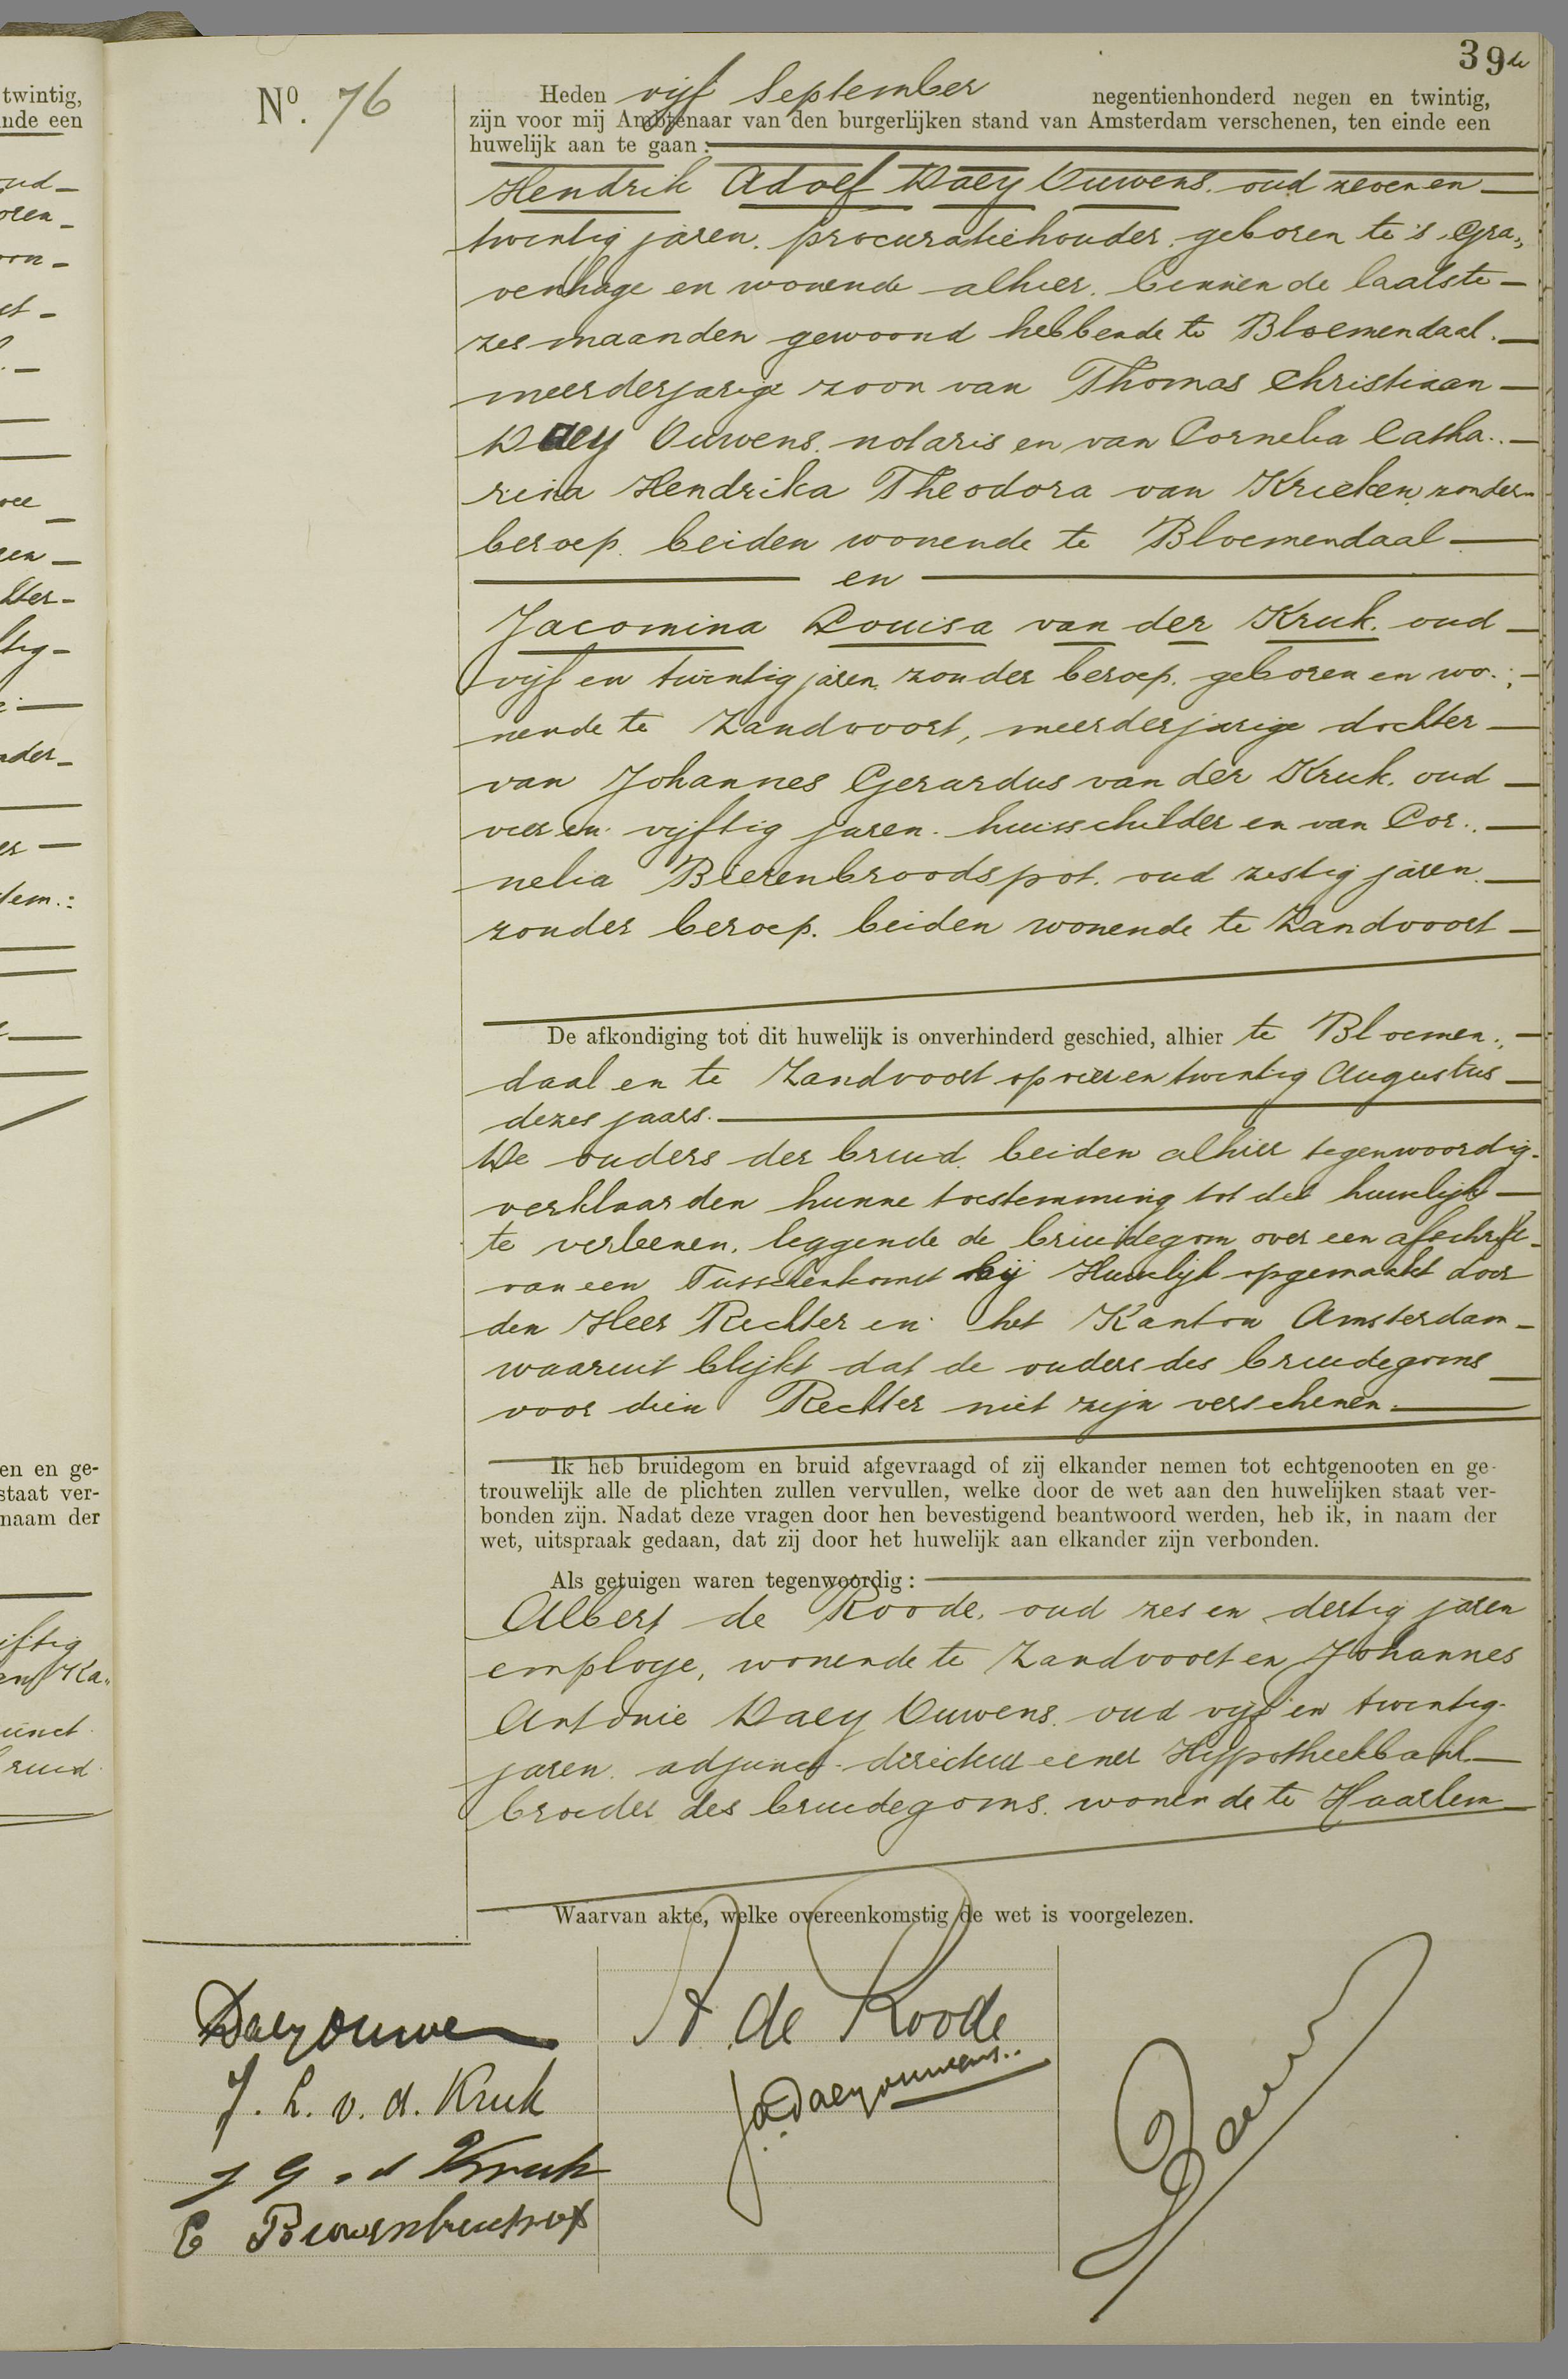 39 de
No. 76
Heden vijf September negentienhonderd negen en twintig,
zijn voor mij Ambtenaar van den burgerlijken stand van Amsterdam verschenen, ten einde een
huwelijk aan te gaan:
Hendrik Adolf Daey Ouwens. oud zeven en
twintig jaren. procuratiehouder. geboren te 's Gra„
venhage en wonende alhier. binnen de laatste
zes maanden gewoond hebbende te Bloemendaal.
meerderjarige zoon van Thomas Christiaan
Daey Ouwens. notaris en van Cornelia Catha..
rina Hendrika Theodora van Krieken, zonder
beroep. beiden wonende te Bloemendaal
en
Jacomina Louisa van der Kruk. oud
vijf en twintig jaren. zonder beroep. geboren en wo.,
nende te Zandvoort, meerderjarige dochter
van Johannes Gerardus van der Kruk. oud
vier en vijftig jaren. huisschilder en van Cor..
nelia Bierenbroodspot. oud zestig jaren.
zonder beroep. beiden wonende te Zandvoort
De afkondiging tot dit huwelijk is onverhinderd geschied, alhier te Bloemen.,
daal en te Zandvoort op vier en twintig Augustus
dezes jaars.
De ouders der bruid. beiden alhier tegenwoordig.
verklaarden hunne toestemming tot dit huwelijk
te verleenen. leggende de bruidegom over een afschrift
van een Tusschenkomst bij Huwelijk opgemaakt door
den Heer Rechter in het Kanton Amsterdam
waaruit blijkt dat de ouders des bruidegoms
voor dien Rechter niet zijn verschenen.
Ik heb bruidegom en bruid afgevraagd of zij elkander nemen tot echtgenooten en ge-
trouwelijk alle de plichten zullen vervullen, welke door de wet aan den huwelijken staat ver-
bonden zijn. Nadat deze vragen door hen bevestigend beantwoord werden, heb ik, in naam der
wet, uitspraak gedaan, dat zij door het huwelijk aan elkander zijn verbonden.
Als getuigen waren tegenwoordig:
Albert de Roode, oud zes en dertig jaren
employe, wonende te Zandvoort en Johannes
Antonie Daey Ouwens. oud vijf en twintig
jaren. adjunct-directeur eener Hypotheekbank
broeder des bruidegoms. wonende te Haarlem
Waarvan akte, welke overeenkomstig de wet is voorgelezen.
Daey Ouwens
J. L. v. d. Kruk
J G v d Kruk
C Bierenbroodspot
A. de Roode
J.A. Daey Ouwens..